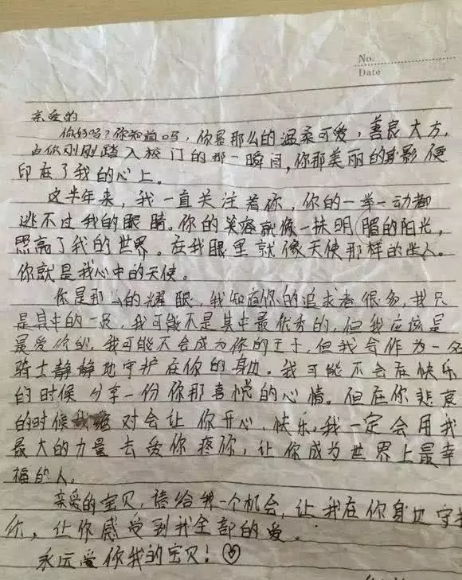 No.
Date
亲爱的
你好吗？你知道吗，你是那么的温柔可爱，善良大方，
当你刚刚踏入校门的那一瞬间，你那美丽的身影便
印在了我的心上。
这半年来，我一直关注着你，你的一举一动都
逃不过我的眼睛。你的笑容就像一抹明媚的阳光，
照亮了我的世界。在我眼里就像天使那样的坐人。
你就是我心中的天使。
你是那么的耀眼，我知道你的追求者很多，我只
是其中的一员，我可能不是其中最优秀的，但我应该是
最爱你的，我可能不会成为你的王子，但我会作为一名
骑士静静地守护在你的身边。我可能不会在快乐
的时候分享一份你那喜悦的心情。但在你悲哀
的时候 对会让你开心，快乐，我一定会用我
最大的力量去爱你疼你，让你成为世界上最幸
福的人。
亲爱的宝贝，请给我一个机会，让我在你身边守护
你，让你感受到我全部的爱。
永远爱你我的宝贝！